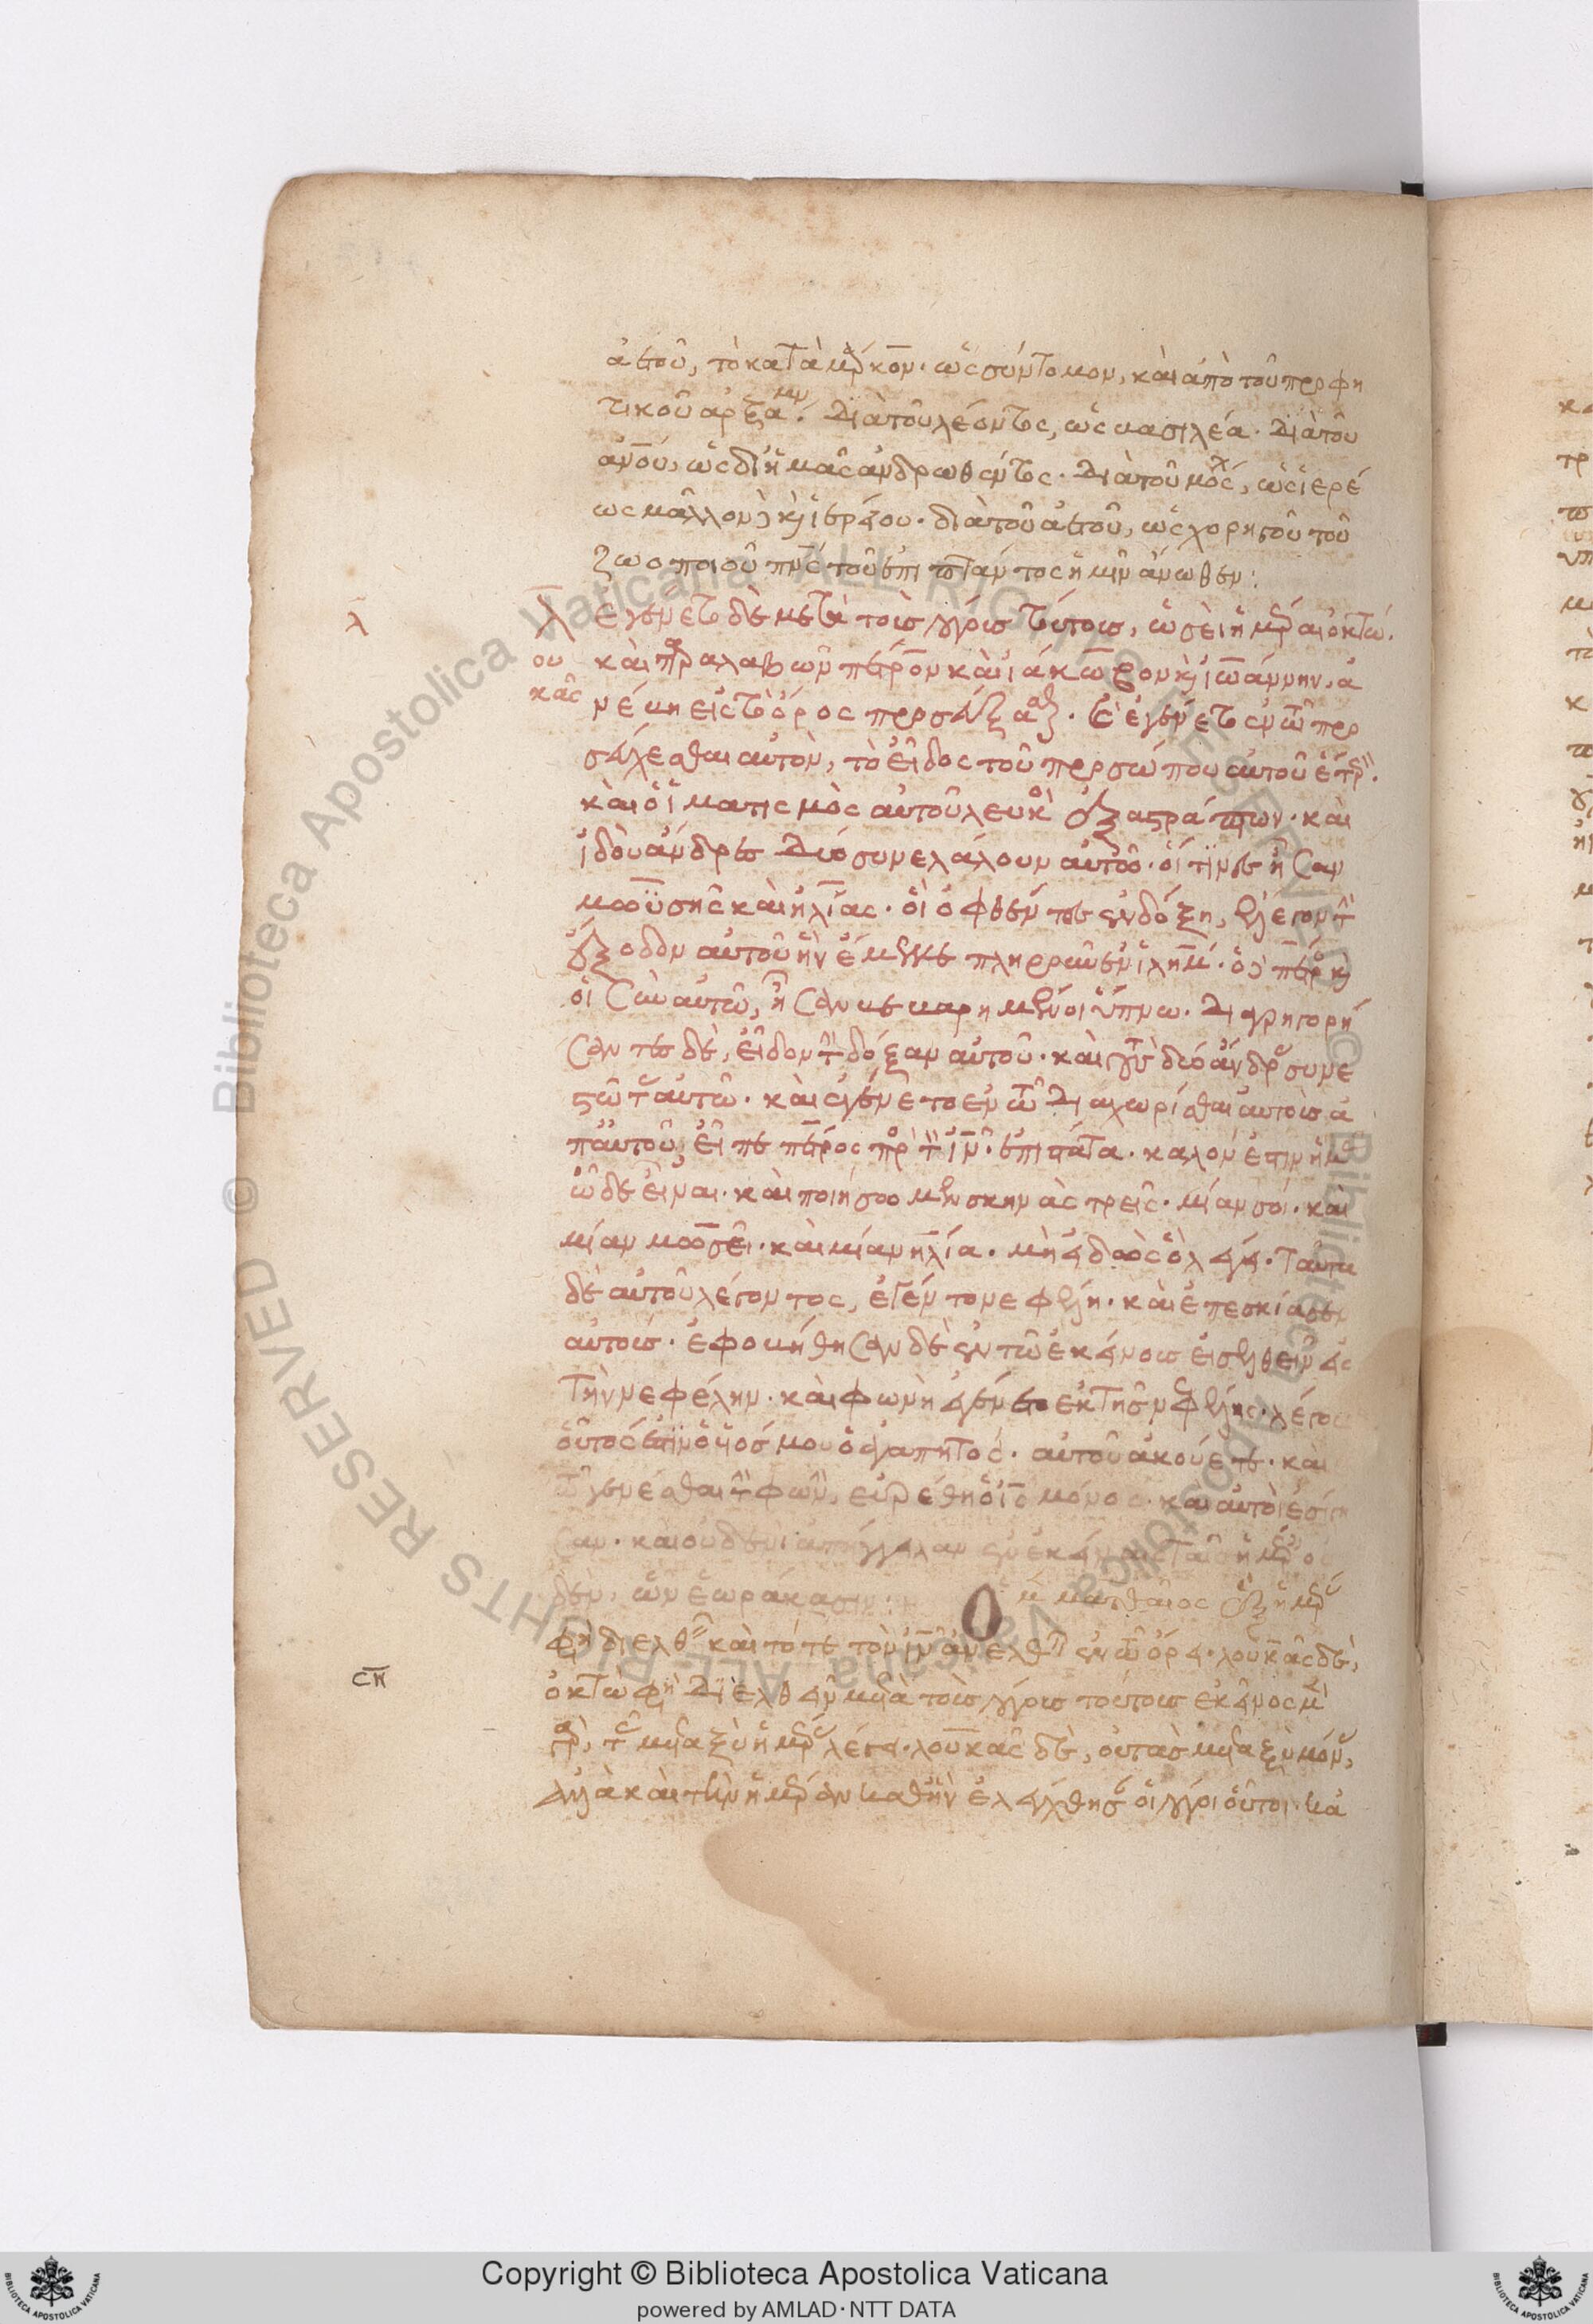 ἀετοῦ, τὸ κατὰ μάρκον· ὡς σύντομον, καὶ ἀπὸ τοῦ προφη
τικοῦ ἀρξάμν· διὰ τοῦ λέοντος, ὡς βασιλέα· διὰ τοῦ
ἀνου, ὡς δι' ἡμᾶς ἀνδρωθέντος· διὰ τοῦ μόσχ, ὡς ἱερέ
ως μᾶλλον δὲ καὶ ἱερείου· διὰ τοῦ ἀετοῦ, ὡς χορηγοῦ τοῦ
ζωοποιοῦ πνς τοῦ ἐπιπτάντος ἡμῖν ἄνωθεν:
λ
λου
κᾶς
ἐγένετο δὲ μετὰ τοὺς λόγους τούτους, ὡσεὶ ἡμέραι ὀκτώ·
καὶ παραλαβὼν πέτρον καὶ ἰάκωβον καὶ ἰωάννην, ἀ
νέβη εἰς τὸ ὄρος προσεύξασθαι· καὶ ἐγένετο ἐν τῷ προ
σεύχεσθαι αὐτὸν, τὸ εἶδος τοῦ προσώπου αὐτοῦ ἕτερον·
καὶ ὁ ἱματισμὸς αὐτοῦ λευκὸς ἐξαστράπτων· καὶ
ἰδοὺ ἄνδρες δύο συνελάλουν αὐτῷ· οἵτινες ἦσαν
μωϋσῆς καὶ ἠλίας· οἳ ὀφθέντες ἐν δόξῃ, ἔλεγον τὴν
ἔξοδον αὐτοῦ ἣν ἔμελλε πληροῦν ἐν ἱλημ· ὁ δὲ πέτρος καὶ
οἱ σὺν αὐτῷ, ἦσαν βεβαρημένοι ὕπνῳ· διαγρηγορή
σαντες δὲ, εἶδον τὴν δόξαν αὐτοῦ· καὶ τοὺς δύο ἄνδρας συνε
στῶτας αὐτῷ· καὶ ἐγένετο ἐν τῷ διαχωρίζεσθαι αὐτοὺς ἀ
π' αὐτοῦ, εἶπε πέτρος πρὸς τὸν ἰν· ἐπιστάτα· καλόν ἐστιν ἡμᾶς
ὧδε εἶναι· καὶ ποιήσωμεν σκηνὰς τρεῖς· μίαν σοί· καὶ
μίαν μωσεῖ· καὶ μίαν ἠλίᾳ· μὴ εἰδὼς ὃ λέγει· ταῦτα
δὲ αὐτοῦ λέγοντος, ἐγένετο νεφέλη· καὶ ἐπεσκίασεν
αὐτούς· ἐφοβήθησαν δὲ ἐν τῷ ἐκείνους εἰσελθεῖν εἰς
τὴν νεφέλην· καὶ φωνὴ ἐγένετο ἐκ τῆς νεφέλης· λέγου
οὗτός ἐστιν ὁ υἱός μου ὁ ἀγαπητός· αὐτοῦ ἀκούετε· καὶ
τῷ γενέσθαι τὴν φωνὴν, εὑρέθη ὁ ις μόνος· καὶ αὐτοὶ ἐσίγη
σαν· καὶ οὐδενὶ ἀπήγγειλαν ἐν ἐκείναις ταῖς ἡμέραις οὐ
δὲν, ὧν ἑωράκασιν:
Ὁ μὲν ματθαῖος ἓξ ἡμέρας
φησὶ διελθεῖν καὶ τότε τὸν ἰν ἀνελθεῖν ἐν τῷ ὄρει· λουκᾶς δὲ,
σπ
ὀκτὼ φησὶ διελθεῖν μετὰ τοὺς λόγους τούτους ἐκεῖνος μὲν
γὰρ, τὰς μεταξὺ ἡμέρας λέγει· λουκᾶς δὲ, οὐ τὰς μεταξὺ μόνας,
ἀλλὰ καὶ τὴν ἡμέραν καθ' ἣν ἐλέχθησαν οἱ λόγοι οὗτοι· κἀ
© Biblioteca Apostolica Vaticana ALL RIGHTS RESERVED
Copyright © Biblioteca Apostolica Vaticana
powered by AMLAD·NTT DATA
BIBLIOTECA APOSTOLICA VATICANA